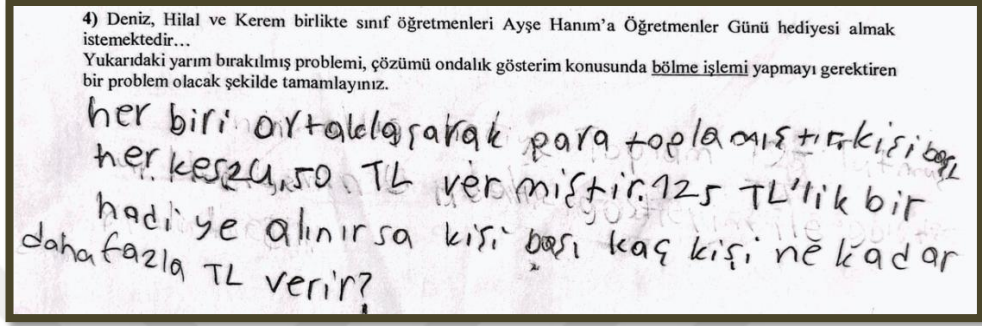 4) Deniz, Hilal ve Kerem birlikte sınıf öğretmenleri Ayşe Hanım'a Öğretmenler Günü hediyesi almak
istemektedir…
Yukarıdaki yarım bırakılmış problemi, çözümü ondalık gösterim konusunda bölme işlemi yapmayı gerektiren
bir problem olacak şekilde tamamlayınız.
her biri ortaklaşarak para toplamıştır kişi başı
herkes 24,50 TL vermiştir. 125 TL'lik bir
hadiye alınırsa kişi başı kaç kişi ne kadar
daha fazla TL verir?